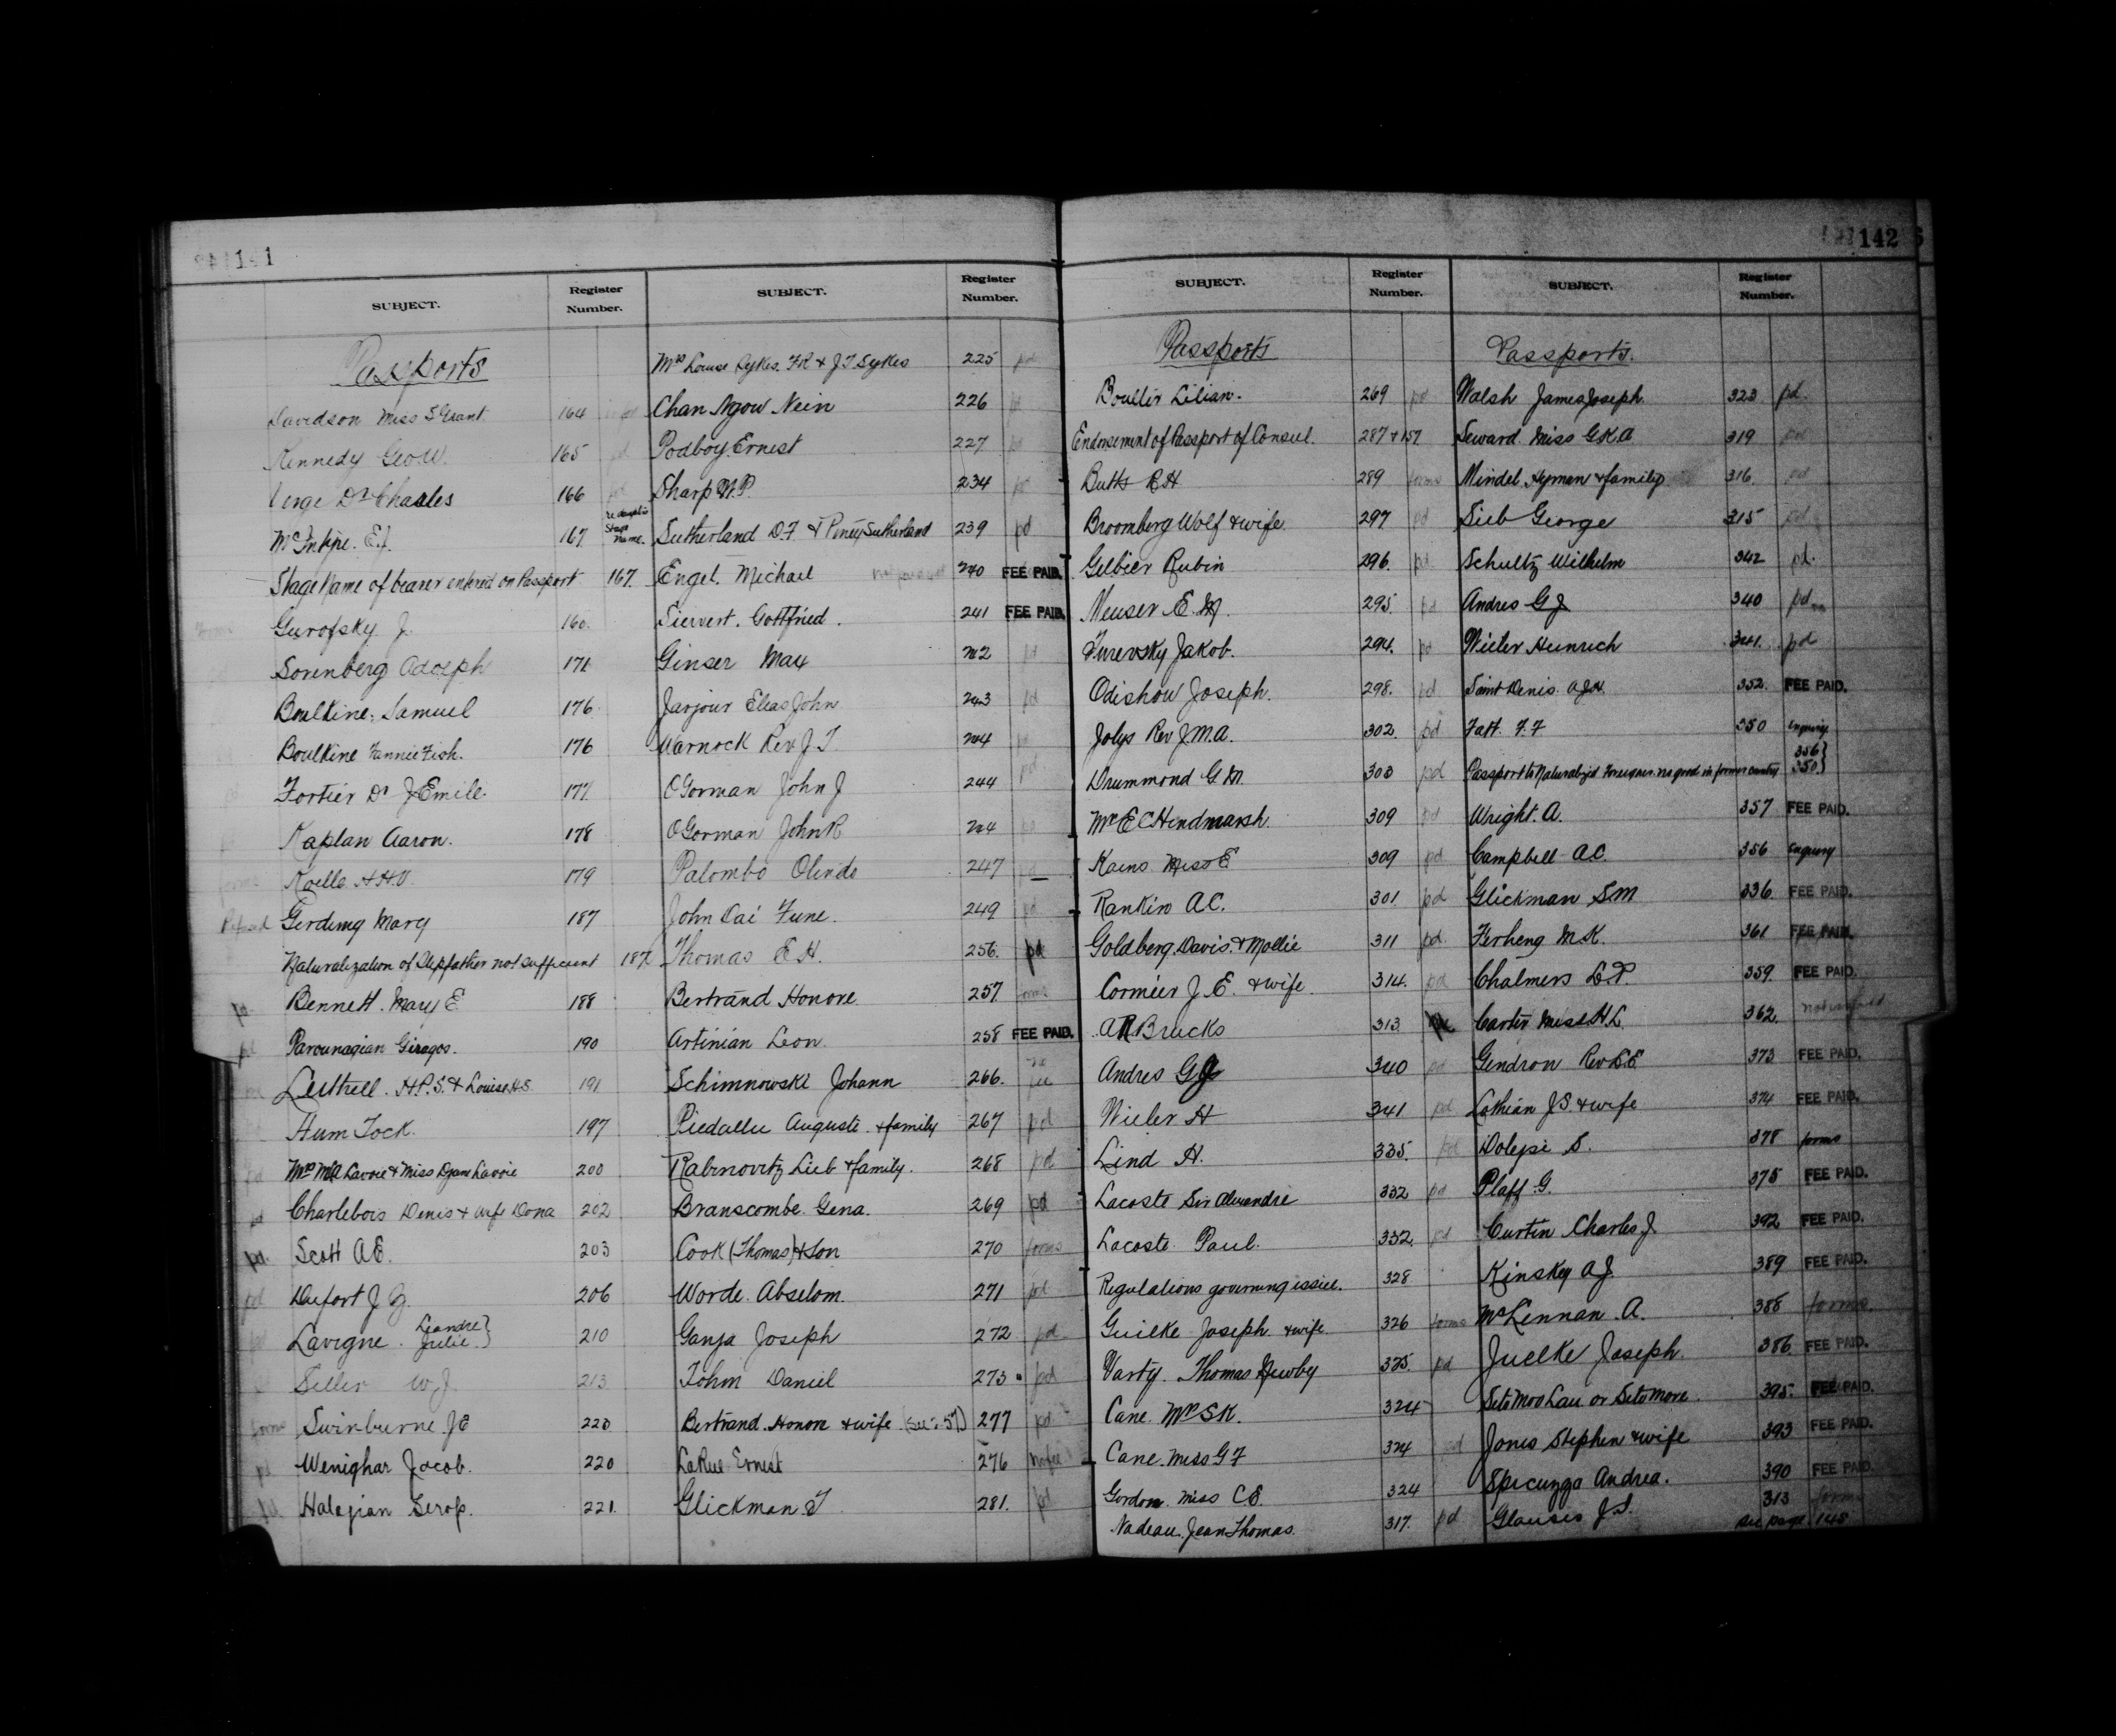 141
SUBJECT. Register Number.
Passports
Davidson Miss S Grant 164
Kennedy Geo W. 165 pd
Verge Dr Charles 166 pd
McIntyre. E.J. 167 Stage name.
Stage Name of bearer entered on Passport 167.
Gurofsky J. 160.
Sorenberg Adolph 171
Boulkine, Samuel 176
Boulkine Fannie Fish. 176
Fortier Dr J Emile. 177
Kaplan Aaron. 178
forms Koelle H.H.V. 179
Refused Gerding Mary 187
Naturalization of Stepfather not sufficient 187
pd Bennett. Mary E 188
pd Parounagian Giragos. 190
Luttrell. H.P.S. & Louise H.S. 191
Hum Tock. 197
pd Mrs M.A Lavoie & Miss Lavoie 200
pd Charlebois Denis & wife Dona 202
pd. Scott A.E. 203
pd Dufort J. 206
Lavigne. Leandre } Julie } 210
Seller W.J. 213
forms Swinburne. J E 220
pd Wenighar Jacob. 220
pd. Halajian Serop. 221.
SUBJECT. Register Number.
Mrs Louise Sykes. F.R & J.T Sykes 225 pd
Chan Ngow Nein 226 pd
Podboy Ernest 227 pd
Sharp W.P. 234 pd
Sutherland D.F. & Sutherland 239 pd
Engel. Michael 240 FEE PAID.
Sievert. Gottfried. 241 FEE PAID.
Ginser Max 242 pd
Jarjour Elias John 243 pd
Warnock Rev J.T. 244 pd
O'Gorman John J 244 pd
O'Gorman John R 244 pd
Palombo Olindo 247
John Dai Fune. 249 pd
Thomas E.H. 256. pd
Bertrand Honore 257 forms
Artinian Leon 258 FEE PAID.
Schimnowski Johann 266. no fee
Piedallu Auguste & family 267 pd
Rabinovitz Lieb & family. 268 pd
Branscombe. Gena. 269 pd
Cook (Thomas) & Son 270 forms
Worde. Abselom. 271 pd
Ganja Joseph 272 pd
Tohm Daniel 273 pd
Bertrand. Honore & wife (See 257) 277 pd
LaRue Ernest 276 no fee
Glickman. T 281. pd
142
SUBJECT. Register Number.
Passports
Boulter Lilian. 269 pd
Endorsement of Passport of Consul. 287 & 157
Butts R H 289 forms
Broomberg Wolf & wife. 297 pd
Gelbier Rubin 296. pd
Meuser E. M. 295. pd
Turevsky Jakob. 294. pd
Odishow Joseph. 298. pd
Jolys Rev J.M.A. 302. pd
Drummond G.M. 303 pd
Mr E C Hendmarsh. 309 pd
Kains Miss E 309 pd
Rankin A.C. 301 pd
Goldberg. Davis. & Mollie 311 pd
Cormier J. E. & wife. 314. pd
A R Brucks 313
Andres G J 340 pd
Wieler H 341 pd
Lind H. 335. pd
Lacoste Sir Alexandre 332 pd
Lacoste Paul. 332. pd
Regulations governing issue. 328
Guilke Joseph & wife 326 forms
Varty. Thomas Newby 325. pd
Cane Mrs S.K. 324
Cane. Miss G F 324 pd
Gordon Miss C E. 324
Nadeau. Jean Thomas. 317. pd
SUBJECT. Register Number.
Passports.
Walsh James Joseph 323 pd.
Seward Miss G.K.A 319 pd
Mindel Hyman & family 316. pd
Lieb George 315 pd
Schultz Wilhelm 342 pd.
Andres G J 340 pd
Wieler Heinrich 341. pd
Saint Denis A.J.N. 352. FEE PAID.
Tatt. F.F 350 enquiry
Passport to Naturalized Foreigner no good in former country 356 } 350 }
Wright. A. 357 FEE PAID.
Campbell A.C. 356 enquiry
Glickman S.M 336. FEE PAID.
Ferheng M.K. 361 FEE PAID.
Chalmers L.P. 359. FEE PAID.
Carter Miss H.L. 362.
Gendron Rev L.E. 373 FEE PAID.
Lothian J S & wife 374 FEE PAID.
Dolepi S. 378 forms
Plaff G. 375 FEE PAID.
Curtin Charles J. 392 FEE PAID.
Kinskey A J. 389 FEE PAID.
McLennan. A. 388 forms
Juelke Joseph. 386. FEE PAID.
Seto Moo Lau or Seto More. 395. FEE PAID.
Jones Stephen & wife 393 FEE PAID.
Spicuzza Andrea. 390 FEE PAID.
Glausis J.S. 313 forms
see page 148